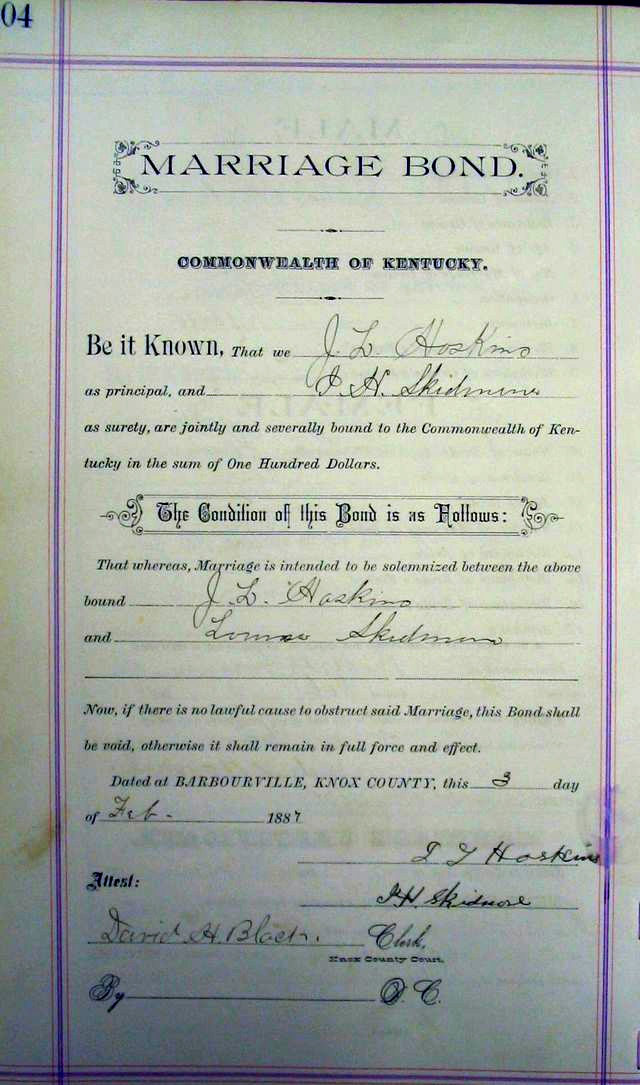 04
MARRIAGE BOND.
COMMONWEALTH OF KENTUCKY.
Be it Known, That we J. L. Hoskins
as principal, and J. H. Skidmore
as surety, are jointly and severally bound to the Commonwealth of Ken-
tucky in the sum of One Hundred Dollars.
The Condition of this Bond is as Follows:
That whereas, Marriage is intended to be solemnized between the above
bound J. L. Hoskins
and Skidmore
Now, if there is no lawful cause to obstruct said Marriage, this Bond shall
be void, otherwise it shall remain in full force and effect.
Dated at BARBOURVILLE, KNOX COUNTY, this 3 day
of Feb. 1887
Hoskins
Attest:
J H Skidmore
David H. Black. Clerk,
Knox County Court.
By D. C.